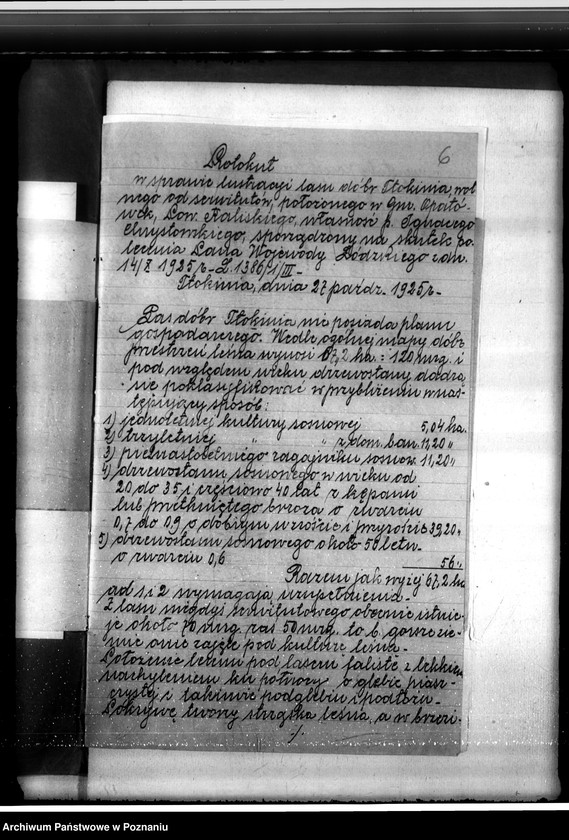 6
Protokuł
w sprawie lustracji lasu dóbr Tłokinia, wol
nego od serwitutów, położonego w gm. Opató-
wek, Pow. Kaliskiego, własność p. Ignacego
Chrystowskiego, sporządzony na skutek po-
lecenia Pana Wojewody Łódzkiego z dn.
14/X 1925 r. L. 1386/1/III -
Tłokinia, dnia 27 paźdz. 1925 r.-
Las dóbr Tłokinia nie posiada planu
gospodarczego. Wedle ogólnej mapy dóbr
przestrzeń leśna wynosi 67,2 ha = 120 mrg. i
pod względem wieku drzewostany dadzą
się poklasyfikować w przybliżeniu nas-
tępujący sposób:
1) jednoletniej kultury sosnowej 5,04 ha.
2) trzyletniej " " z dom. ban. 11,20 "
3) piętnastoletniego zagajnika sosnow. 11,20 "
4) drzewostanu sosnowego w wieku od
20 do 35 i częściowo 40 lat z kępami
lub przetkniętego brzozą o zwarciu
0,7 do 0,9 o dobrym wzroście i przyroście 39,20 "
5) drzewostanu sosnowego około 50 letn.
o zwarciu 0,6 56 "
Razem jak wyżej 67,2 ha
ad 1 i 2 wymagają uzupełnienia.-
Z lasu niegdyś serwitutowego obecnie istnie-
je około 70 mrg. zaś 50 mrg. to b. gorzeźcie-
nie one zajęte pod kulturę leśną.-
Położenie terenu pod lasem faliste z lekkiem
nachyleniem ku północy o glebie piasz-
czystej i takimże podglebiu i podłożu.-
Pokrywę tworzy ściółka leśna, a w brzezi-
./.
Archiwum Państwowe w Poznaniu